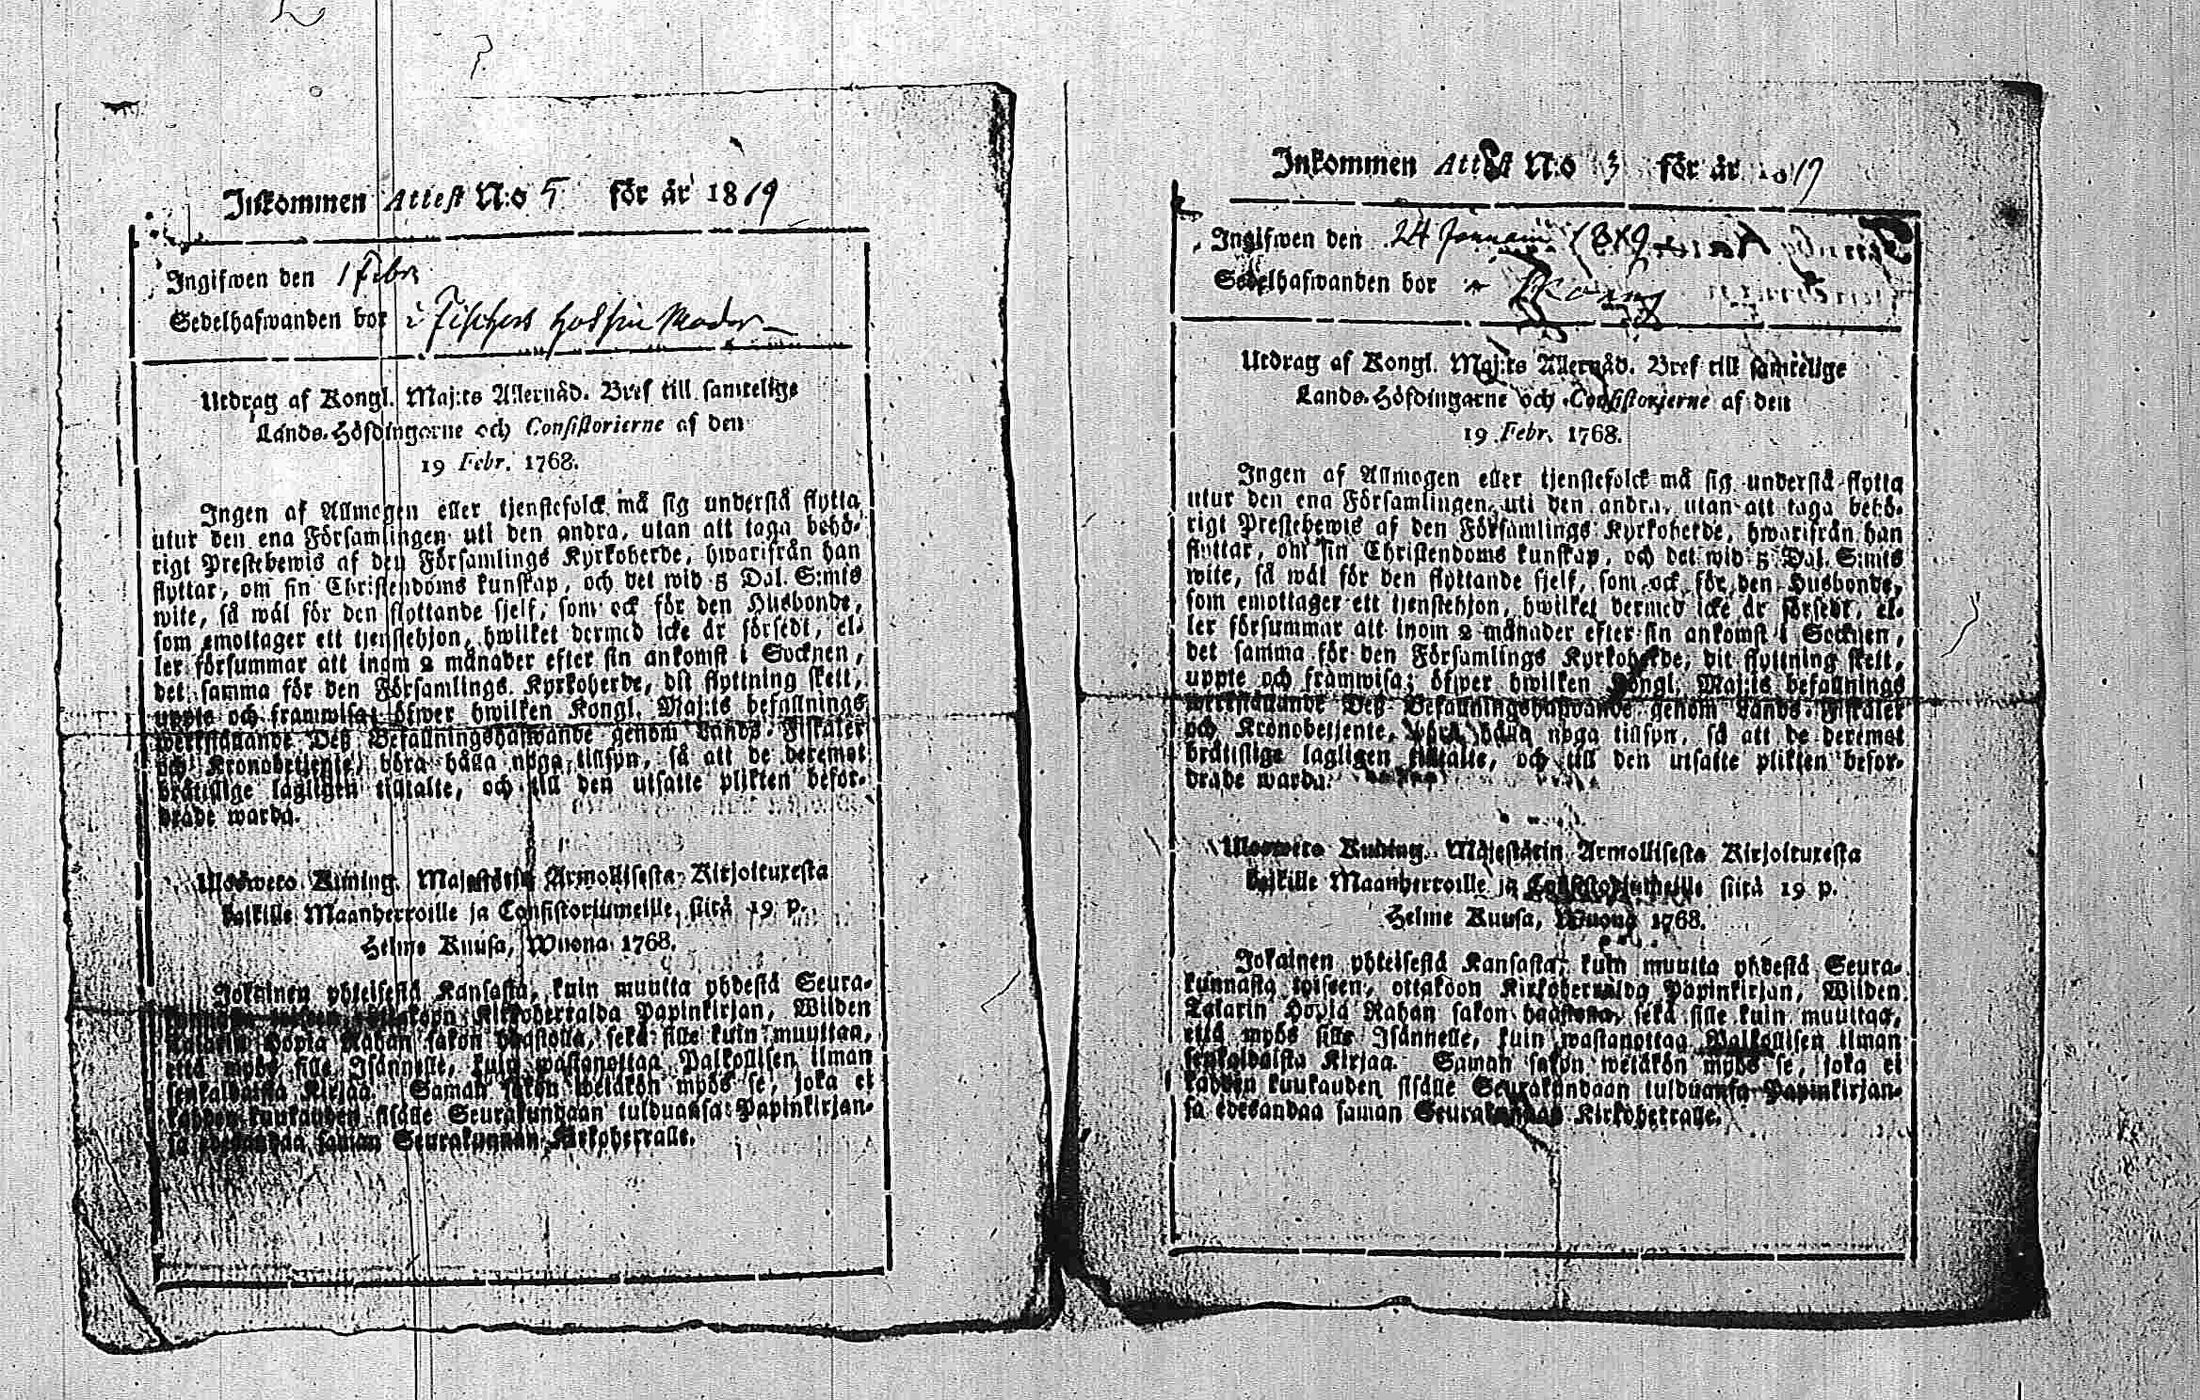 Inkommen Attest N:o 5 för år 1819
Ingifwen den 1 Febr
Sedelhafwanden bor i Fischers
Utdrag af Kongl. Maj:ts Allernåd. Bref till samtelige
Lands-Höfdingarne och Consistorierne af den
19 Febr. 1768.
Ingen af Allmogen eller tjenstefolck må sig understå flytta
utur den ena Församlingen uti den andra, utan att taga behö-
rigt Prestebewis af den Församlings Kyrkoherde, hwarifrån han
flyttar, om sin Christendoms kunskap, och det wid 5 Dal. S:mts
wite, så wäl för den flyttande sjelf, som ock för den Husbonde,
som emottager ett tjenstehjon, hwilket dermed icke är försedt, el-
ler försummar att inom 2 månader efter sin ankomst i Socknen,
det samma för den Församlings Kyrkoherde, dit flyttning skett,
uppte och framwisa; öfwer hwilken Kongl. Maj:ts befallnings
werkställande Deß Befallningshafwande genom Lands-Fiskaler
och Kronobetjente, böra hålla noga tillsyn, så att de deremot
brätislige lagligen tilltalte, och till den utsatte plikten befor-
drade warda.
Ulosweto Kuning. Majestätin Armollisesta Kirjoituxesta
kaikille Maanherroille ja Consistoriumeille, siitä 19 p.
Helme Kuusa, Wuona 1768.
Jokainen yhteisestä Kansasta, kuin muutta yhdestä Seura-
kunnasta toiseen, ottakoon Kirkoherralda Papinkirjan, Wilden
Talarin Hopia Rahan sakon haastolla, sekä sille kuin muuttaa,
että myös sille Isännelle, kuin wastanottaa Palkollisen ilman
senkaldaista Kirjaa. Saman sakon wetäkön myös se, joka ei
kahden kuukauden sisälle Seurakundaan tulduansa Papinkirjan-
sa edesandaa saman Seurakunnan Kirkoherralle.
Inkommen Attest N:o 3 för år 1819
Ingifwen den 24 Januarii 1819
Sedelhafwanden bor
Utdrag af Kongl. Maj:ts Allernåd. Bref till samtelige
Lands-Höfdingarne och Consistorierne af den
19 Febr. 1768.
Ingen af Allmogen eller tjenstefolck må sig understå flytta
utur den ena Församlingen uti den andra, utan att taga behö-
rigt Prestebewis af den Församlings Kyrkoherde, hwarifrån han
flyttar, om sin Christendoms kunskap, och det wid 5 Dal. S:mts
wite, så wäl för den flyttande sjelf, som ock för den Husbonde,
som emottager ett tjenstehjon, hwilket dermed icke är försedt, el-
ler försummar att inom 2 månader efter sin ankomst i Socknen,
det samma för den Församlings Kyrkoherde, dit flyttning skett,
uppte och framwisa; öfwer hwilken Kongl. Maj:ts befallnings
werkställande Deß Befallningshafwande genom Lands-Fiskaler
och Kronobetjente, böra hålla noga tillsyn, så att de deremot
brätislige lagligen tilltalte, och till den utsatte plikten befor-
drade warda.
Ulosweto Kuning. Majestätin Armollisesta Kirjoituxesta
kaikille Maanherroille ja Consistoriumeille siitä 19 p.
Helme Kuusa, Wuona 1768.
Jokainen yhteisestä Kansasta, kuin muutta yhdestä Seura-
kunnasta toiseen, ottakoon Kirkoherralda Papinkirjan, Wilden
Talarin Hopia Rahan sakon haastolla, sekä sille kuin muuttaa,
että myös sille Isännelle, kuin wastanottaa Palkollisen ilman
senkaldaista Kirjaa. Saman sakon wetäkön myös se, joka ei
kahden kuukauden sisälle Seurakundaan tulduansa Papinkirjan-
sa edesandaa saman Seurakunnan Kirkoherralle.